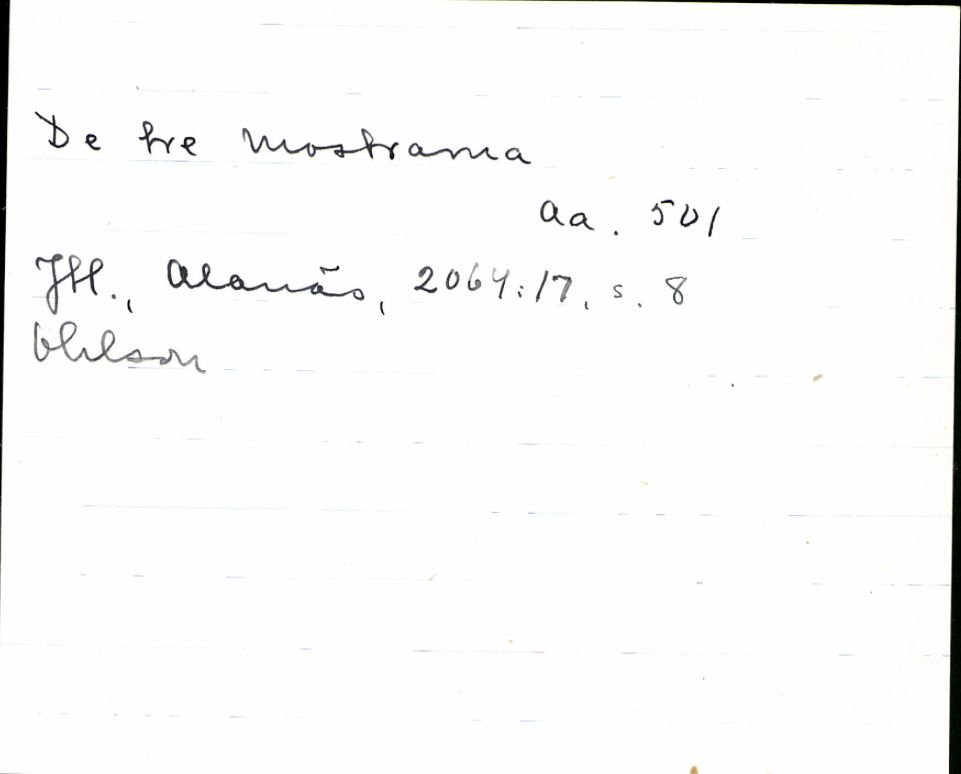 De tre Mostrarna
Aa. 501
Jtl., Alanäs, 2064:17, s. 8
Ohlson